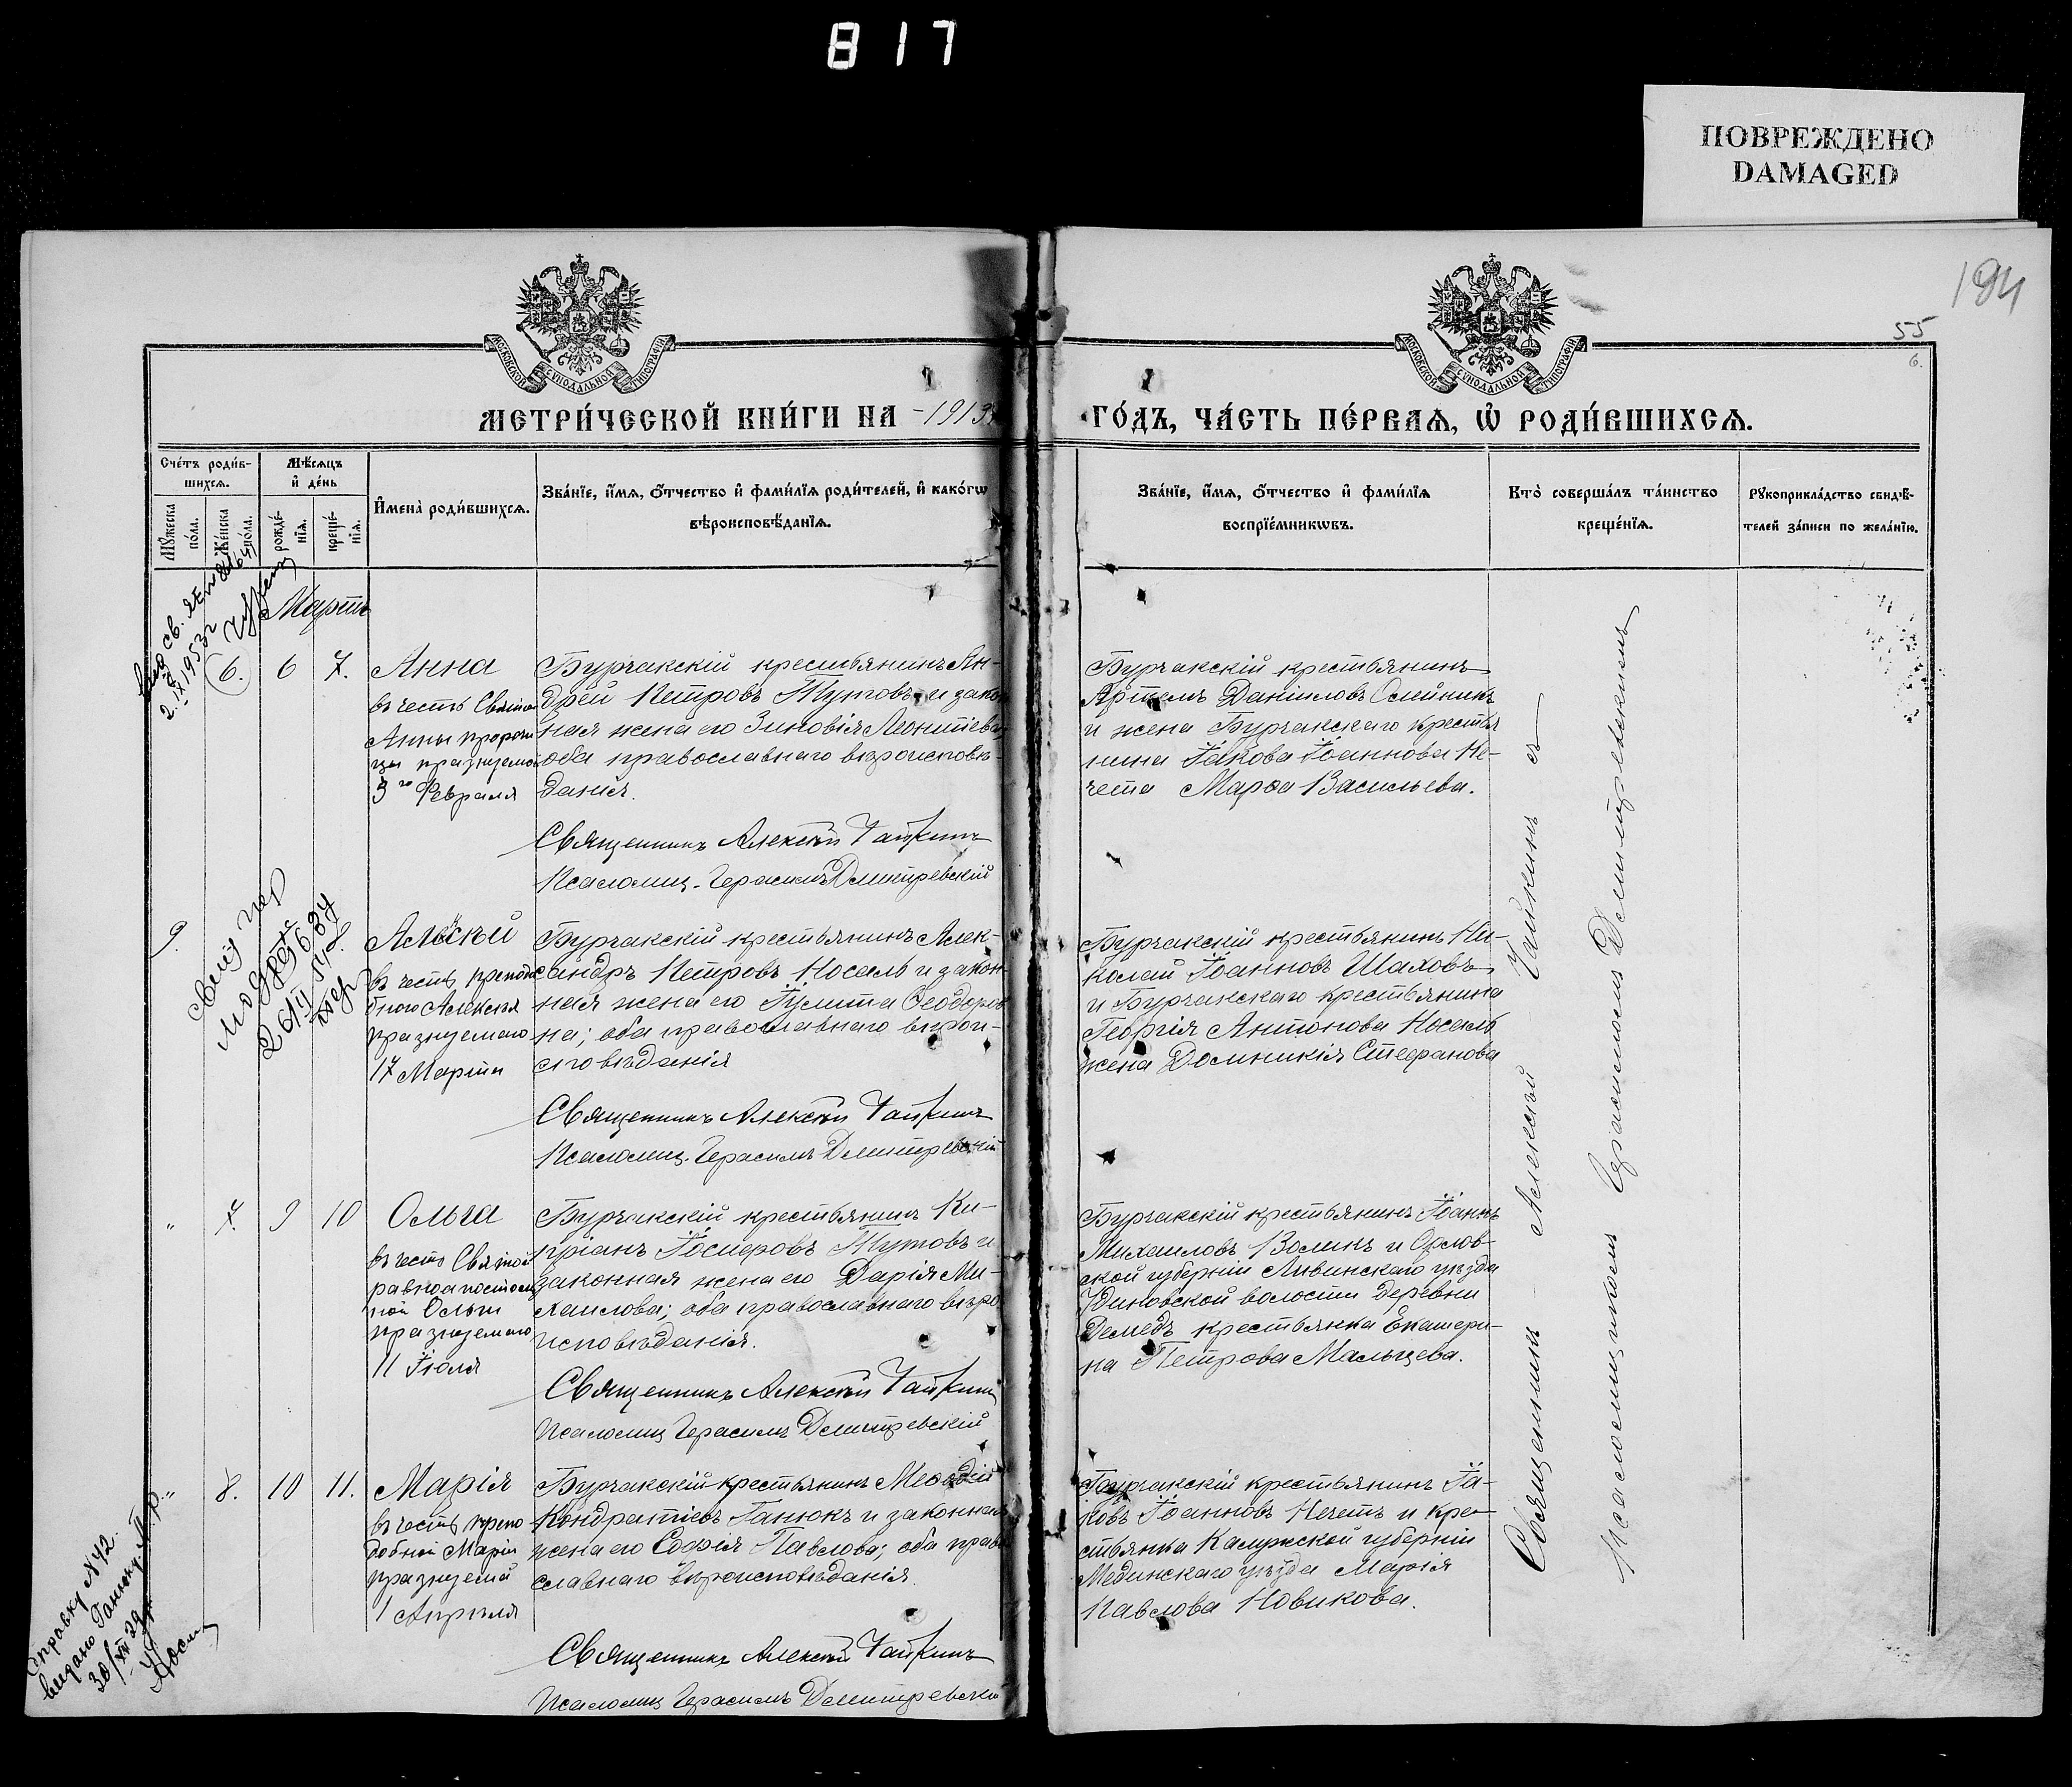 817
ПОВРЕЖДЕНО
DAMAGED
194
55
6.
МОСКОВСКОЙ СѴНОДАЛЬНОЙ ТИПОГРАФІИ
МОСКОВСКОЙ СѴНОДАЛЬНОЙ ТИПОГРАФІИ
МЕТРИ́ЧЕСКОЙ КНИ́ГИ НА -1913
ГО́ДЪ, ЧА́СТЬ ПЕ́РВАѦ, Ѡ҆ РОДИ́ВШИХСѦ.
Сче́тъ роди́в-
шихсѧ.
Мꙋ́жеска по́ла.
Же́нска по́ла.
Мѣ́сѧцъ
и҆ де́нь
рожде́-
нїѧ.
креще́-
нїѧ.
И҆мена̀ роди́вшихсѧ.
Зва́нїе, и҆́мѧ, ѻ҆́тчество и҆ фами́лїѧ роди́телей, и҆ како́гѡ
вѣроисповѣ́данїѧ.
Зва́нїе, и҆́мѧ, ѻ҆́тчество и҆ фами́лїѧ
воспрїе́мникѡвъ.
Кто̀ соверша́лъ та́инство
креще́нїѧ.
Рꙋкоприкла́дство свидѣ́-
телей за́писи по жела́нїю.
Мартъ
2.IX 1953г
6. 6 7. Анна
въ честь Святой
Анны пророчи
цы празднуемой
3го Февраля
Бурчакскій крестьянинъ Ан-
дрей Петровъ Тутовъ и закон
ная жена его Зиновія Леонтіева;
оба православнаго вѣроисповѣ-
данія.
Священникъ Алексѣй Чайкинъ
Псаломщ. Герасимъ Дмитревскій
Бурчакскій крестьянинъ
Артемъ Даніиловъ Олейникъ
и жена Бурчакскаго крестья
нина Іакова Іоаннова Не-
чета Марѳа Васильева.
9
Алексѣй
въ честь преподо
бнаго Алексѣя
празнуемаго
17 Марта
Бурчакскій крестьянинъ Алек-
сандръ Петровъ Носаль и закон
ная жена его Іулита Ѳеодоров
на; оба православнаго вѣрои-
сповѣданія
Священникъ Алексѣй Чайкинъ
Псаломщ. Герасимъ Дмитревскій
Бурчакскій крестьянинъ Ни-
колай Іоанновъ Шаховъ
и Бурчакскаго крестьянина
Георгія Антонова Носаль
жена Домникія Стефанова
" 7. 9 10 Ольга
въ честь Святой
равноапостоль
ной Ольги
празнуемаго
11 Іюля
Бурчакскій крестьянинъ Ки-
пріанъ Іосифовъ Тутовъ и
законная жена его Дарія Ми-
хаилова; оба православнаго вѣро
исповѣданія.
Священникъ Алексѣй Чайкинъ
Псаломщ Герасимъ Дмитревскій
Бурчакскій крестьянинъ Іоаннъ
Михаиловъ Воликъ и Орлов-
ской губерніи Ливинскаго уѣзда
волости деревни
крестьянка Екатери-
на Петрова Мальцева.
" 8. 10 11. Марія
въ честь препо
добной Маріи
празнуемой
1 Апрѣля
Бурчакскій крестьянинъ Меѳодій
Кондратіевъ Ганюкъ и законная
жена его Софія Павлова; оба право
славнаго вѣроисповѣданія.
Священникъ Алексѣй Чайкинъ
Псаломщ Герасимъ Дмитревскій
Бурчакскій крестьянинъ Іа-
ковъ Іоанновъ Нечетъ и кре-
стьянка Калужской губерніи
Мединскаго уѣзда Марія
Павлова Новикова.
Справку N 42.
видано Ганюку М.
30/XII 29
Священникъ Алексѣй Чайкинъ съ
Псаломщикомъ Герасимомъ Дмитревскимъ